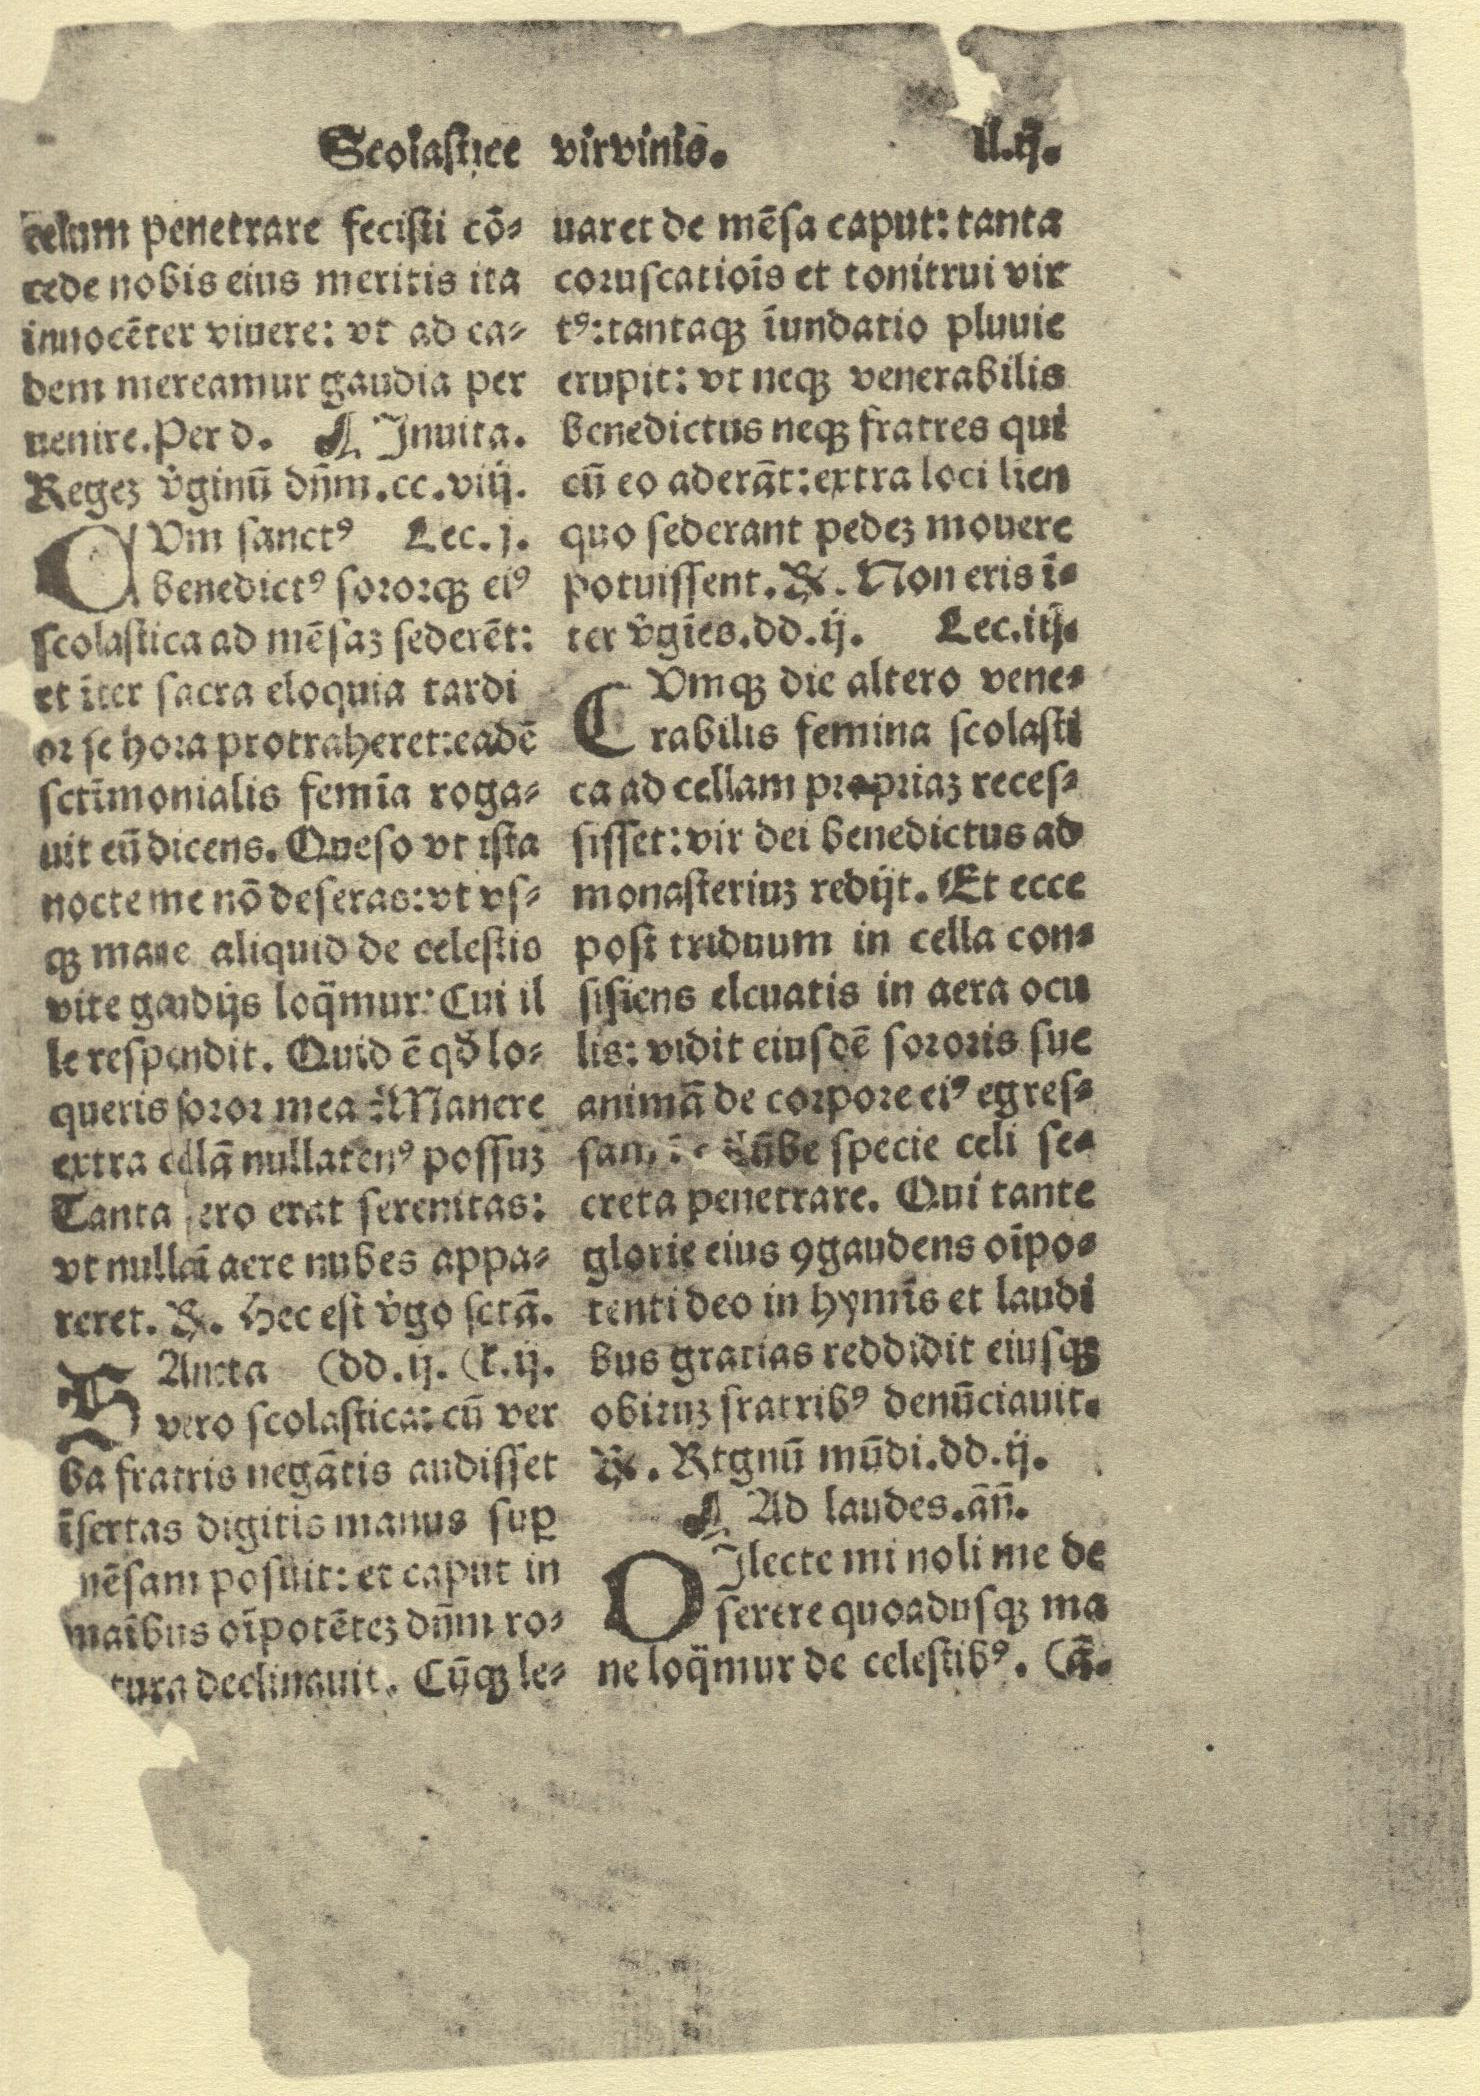 Scolastice virginis. ll.ij.
celum penetrare fecisti cō-
cede nobis eius meritis ita
innocēter viuere: vt ad ea-
dem mereamur gaudia per
uenire. Per d. Inuita.
Regeʒ v̄ginū dn̄m. cc. viij.
CVm sanctꝰ Lec. j.
benedictꝰ sororqꝫ eiꝰ
scolastica ad mēsaʒ sederēt:
et īter sacra eloquia tardi
or se hora protraheret: eadē
sctīmonialis femīa roga-
uit eū dicens. Queso vt ista
nocte me nō deseras: vt vs-
qꝫ mane aliquid de celestis
vite gaudijs loq̄mur: Cui il
le respondit. Quid ē qđ lo-
queris soror mea: Manere
extra cellā nullatenꝰ possuʒ
Tanta vero erat serenitas:
vt nulla ī aere nubes appa-
reret. ℟. Hec est v̄go sctā.
SAncta (dd. ij. (L. ij.
vero scolastica: cū ver
ba fratris negātis audisset
īsertas digitis manus suꝑ
mēsam posuit: et caput in
maībus oīpotēteʒ dn̄m ro-
tura declinauit. Cūqꝫ le-
uaret de mēsa caput: tanta
coruscatiōis et tonitrui vir
tꝰ: tantaqꝫ īundatio pluuie
erupit: vt neqꝫ venerabilis
benedictus neqꝫ fratres qui
cū eo aderāt: extra loci lien
quo sederant pedeʒ mouere
potuissent. ℟. Non eris ī-
ter v̄gīes. dd. ij. Lec. iij.
CVmqꝫ die altero vene-
rabilis femina scolasti
ca ad cellam propriaʒ reces-
sisset: vir dei benedictus ad
monasteriuʒ redijt. Et ecce
post triduum in cella con-
sistens eleuatis in aera ocu
lis: vidit eiusdē sororis sue
animā de corpore eiꝰ egres-
sam ī specie celi se-
creta penetrare. Qui tante
glorie eius ꝯgaudens oīpo-
tenti deo in hymīs et laudi
bus gratias reddidit eiusqꝫ
obituʒ fratribꝰ denūciauit.
℟. Rtgnū mūdi. dd. ij.
Ad laudes. ān̄.
DIlecte mi noli me de
serere quoadusqꝫ ma
ne loq̄mur de celestibꝰ. (ā.